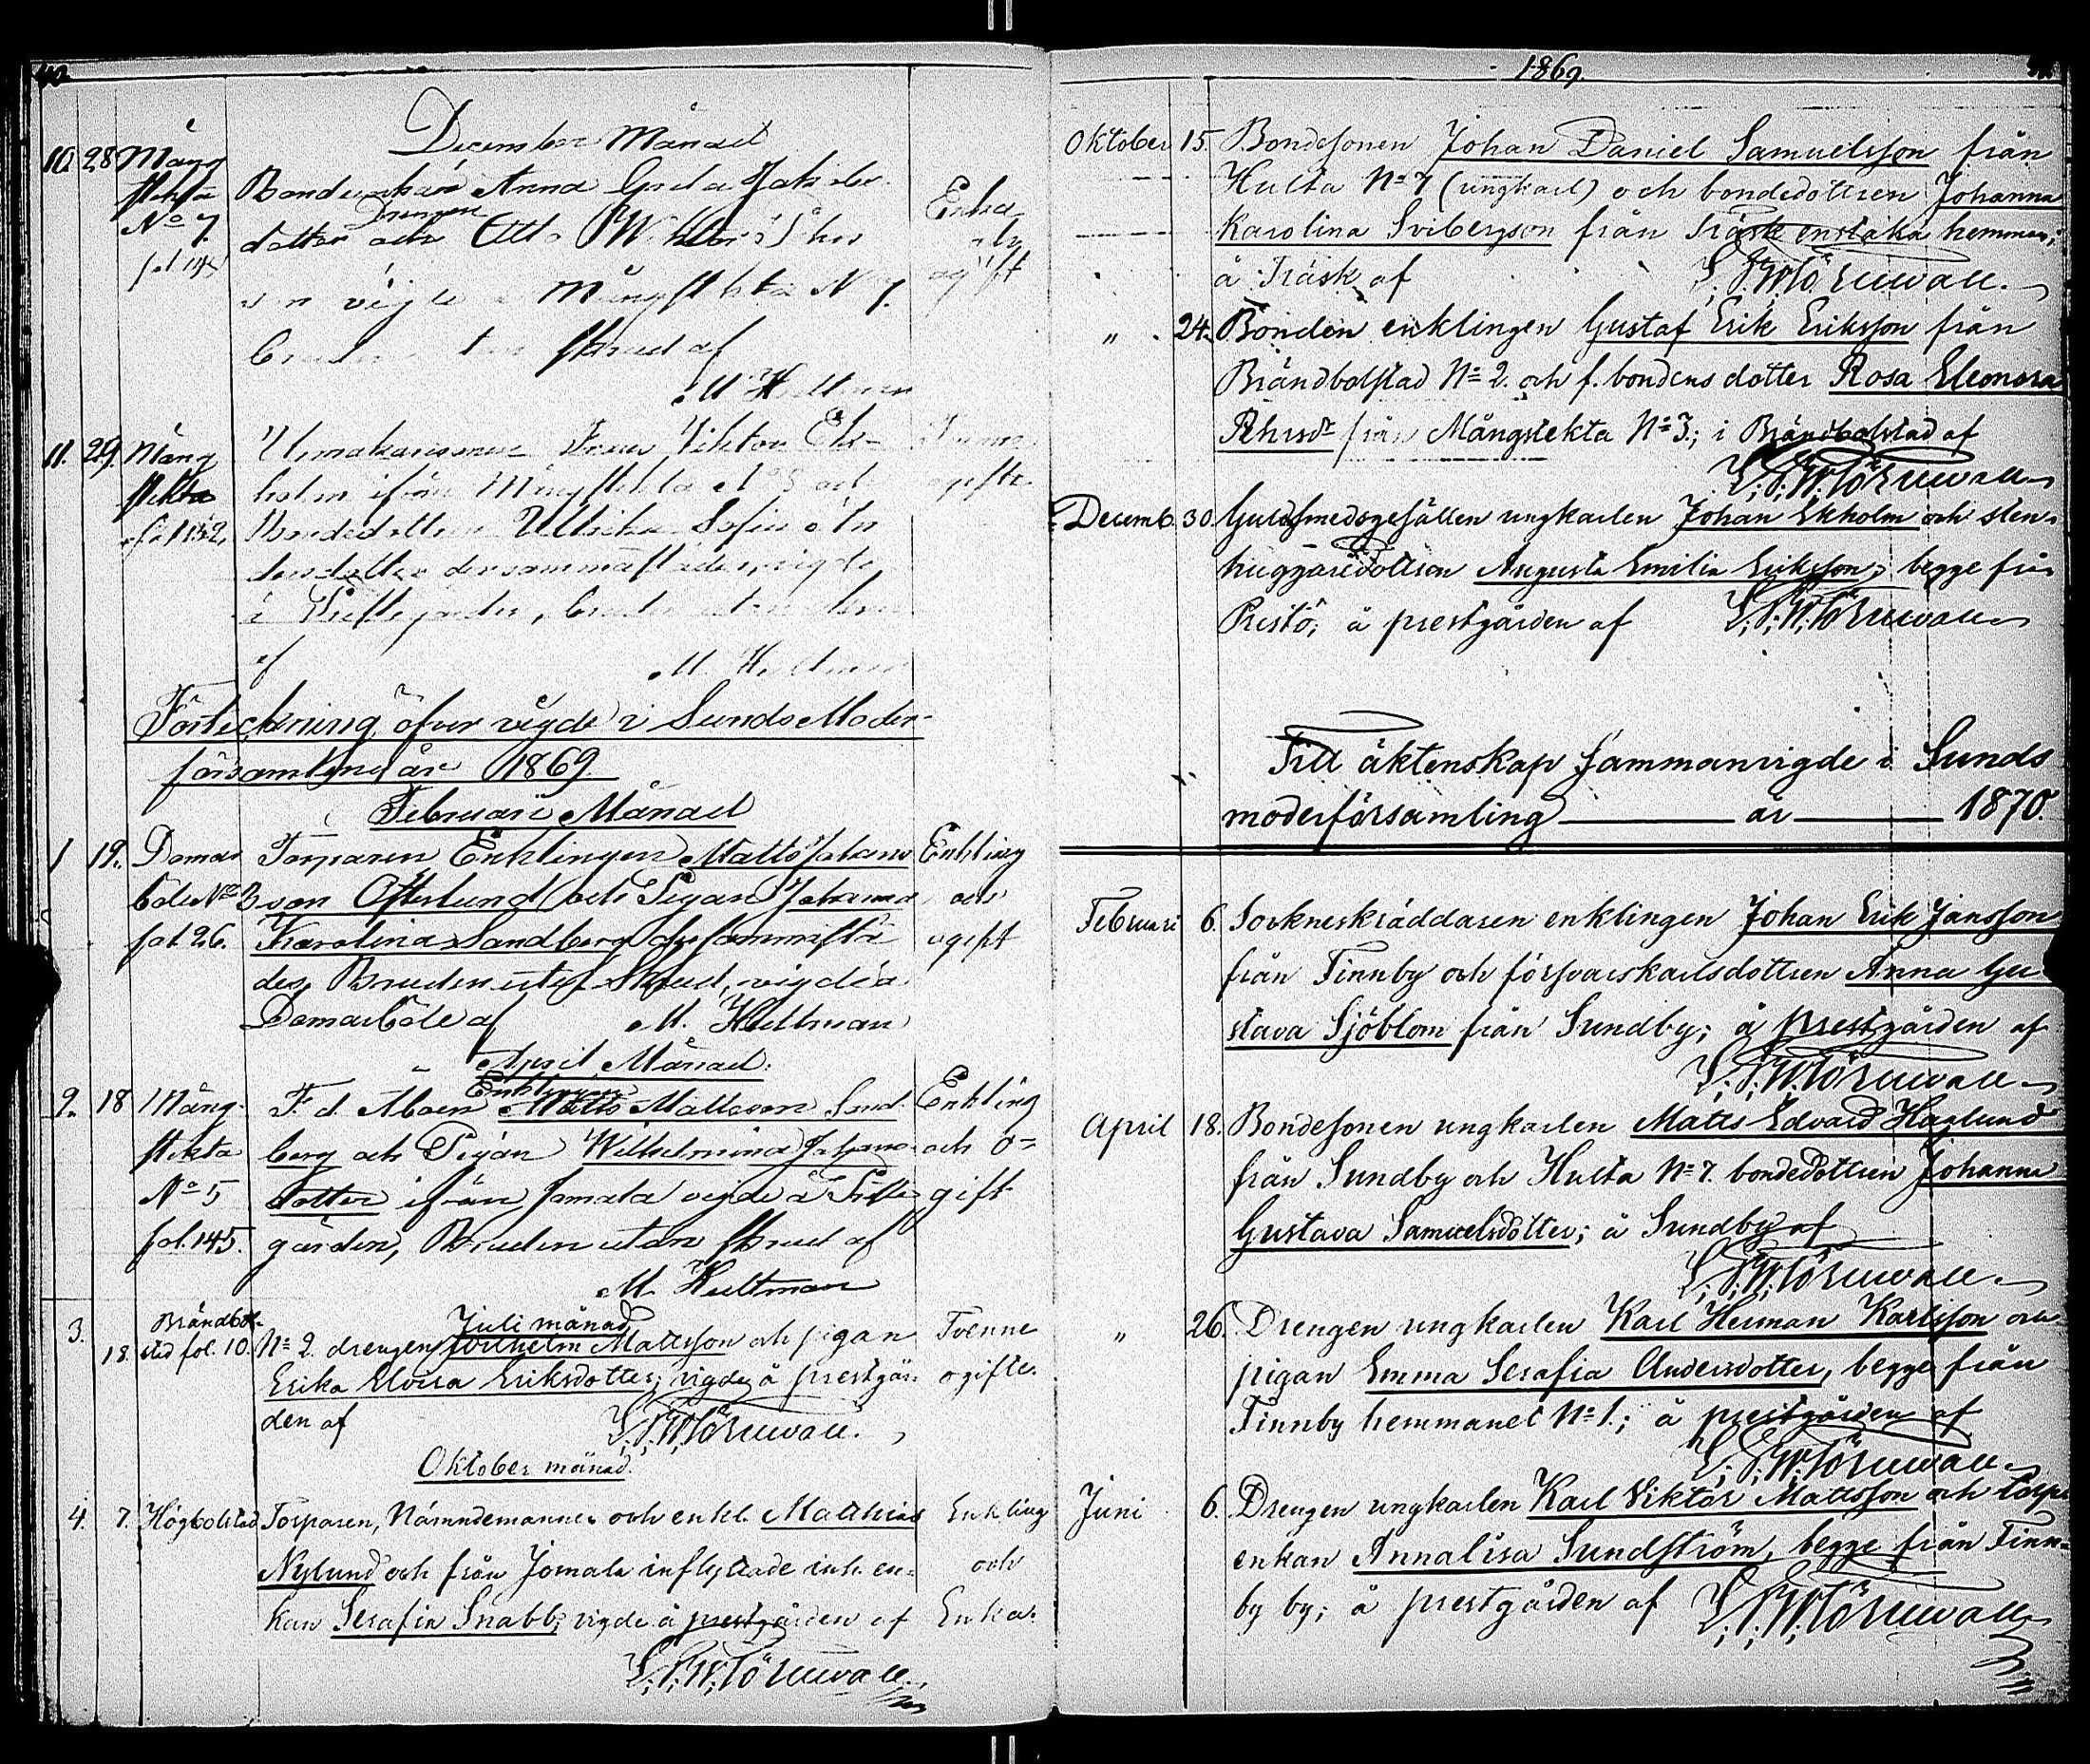 December Månad
10. 28 Mång Bondeenkan Anna Greta Jakobs-
stekta dotter och Drengen Otto Wilhelm
No 7. vigde i Mångstekta N 7. Enka
Bruden utan skrud af
M Hultman
11. 29. Mång Urmakaren Frans Viktor Ek-
stekta holm ifrån Mångstekta No 5 och
fol 132, Bondedottren Ullrika Sofia
dersdotter dersammastädes, vigde ogifte.
i Prestgården, Bruden utan skrud
af M. Hultman
Förteckning öfver vigde i Sunds Moder-
församling år 1869.
Februari Månad
1 19. Domar Torparen Enklingen Matts Johans Enkling
böle No 3 son Österlund och Pigan Johanna och
fol. 26. Karolina Sandberg dersammastä ogift
des, Bruden utan Skrud, vigde å
Domarböle af M. Hultman
April Månad.
2. 18 Mång- F. d. Åboen Enklingen Matts Mattsson Sand- Enkling
stekta berg och Pigan Wilhelmina Johans- och o=
No 5 dotter ifrån Jomala vigde å Prest gift
fol. 145. gården, Bruden utan skrud af
M. Hultman
Juli månad
3. 18. Brändbol-
stad fol. 10. No 2. drengen Wilhelm Mattsson och pigan Tvenne
Erika Elvira Eriksdotter; vigde å prestgår- ogifte.
den af L. P. W. Törnwall.
Oktober månad.
4. 7. Högbolstad Torparen, Nämndemannen och enkl. Matthias Enkling
Nylund och från Jomala inflyttade inh. en- och
kan Serafia Snabb; vigde å prestgården af Enka.
L. P. W. Törnwall.
1869.
Oktober 15. Bondesonen Johan Daniel Samuelsson från
Hulta No 7 (ungkarl) och bondedottren Johanna
Karolina Svibergson från Träsk enstaka hemman;
å Träsk af L. P. W. Törnwall.
" 24. Bonden enklingen Gustaf Erik Eriksson från
Brändbolstad No 2. och f. bondens dotter Rosa Eleonora
Rehnsdr från Mångstekta No 3.; i Brändbolstad af
L. P. W. Törnwall.
Decemb. 30. Guldsmedsgesällen ungkarlen Johan Ekholm och sten-
huggaredottren Augusta Emilia Eriksson; begge från
Prestö; å prestgården af L. P. W. Törnwall.
Till äktenskap sammanvigde i Sunds
moderförsamling år 1870.
Februari 6. Sockneskräddaren enklingen Johan Erik Jansson
från Finnby och försvarskarlsdottren Anna Gu
stava Sjöblom från Sundby; å prestgården af
L. P. W. Törnwall.
April 18. Bondesonen ungkarlen Matts Edvard Haglund
från Sundby och Hulta No 7. bondedottren Johanna
Gustava Samuelsdotter; å Sundby af
L. P. W. Törnwall.
" 26. Drengen ungkarlen Karl Herman Karlsson och
pigan Emma Serafia Andersdotter, begge från
Finnby hemmanet No 1.; å prestgården af
L. P. W. Törnwall.
Juni 6. Drengen ungkarlen Karl Viktor Mattsson och torp.
enkan Annalisa Sundström, begge från Finn-
by by; å prestgården af L. P. W. Törnwall.